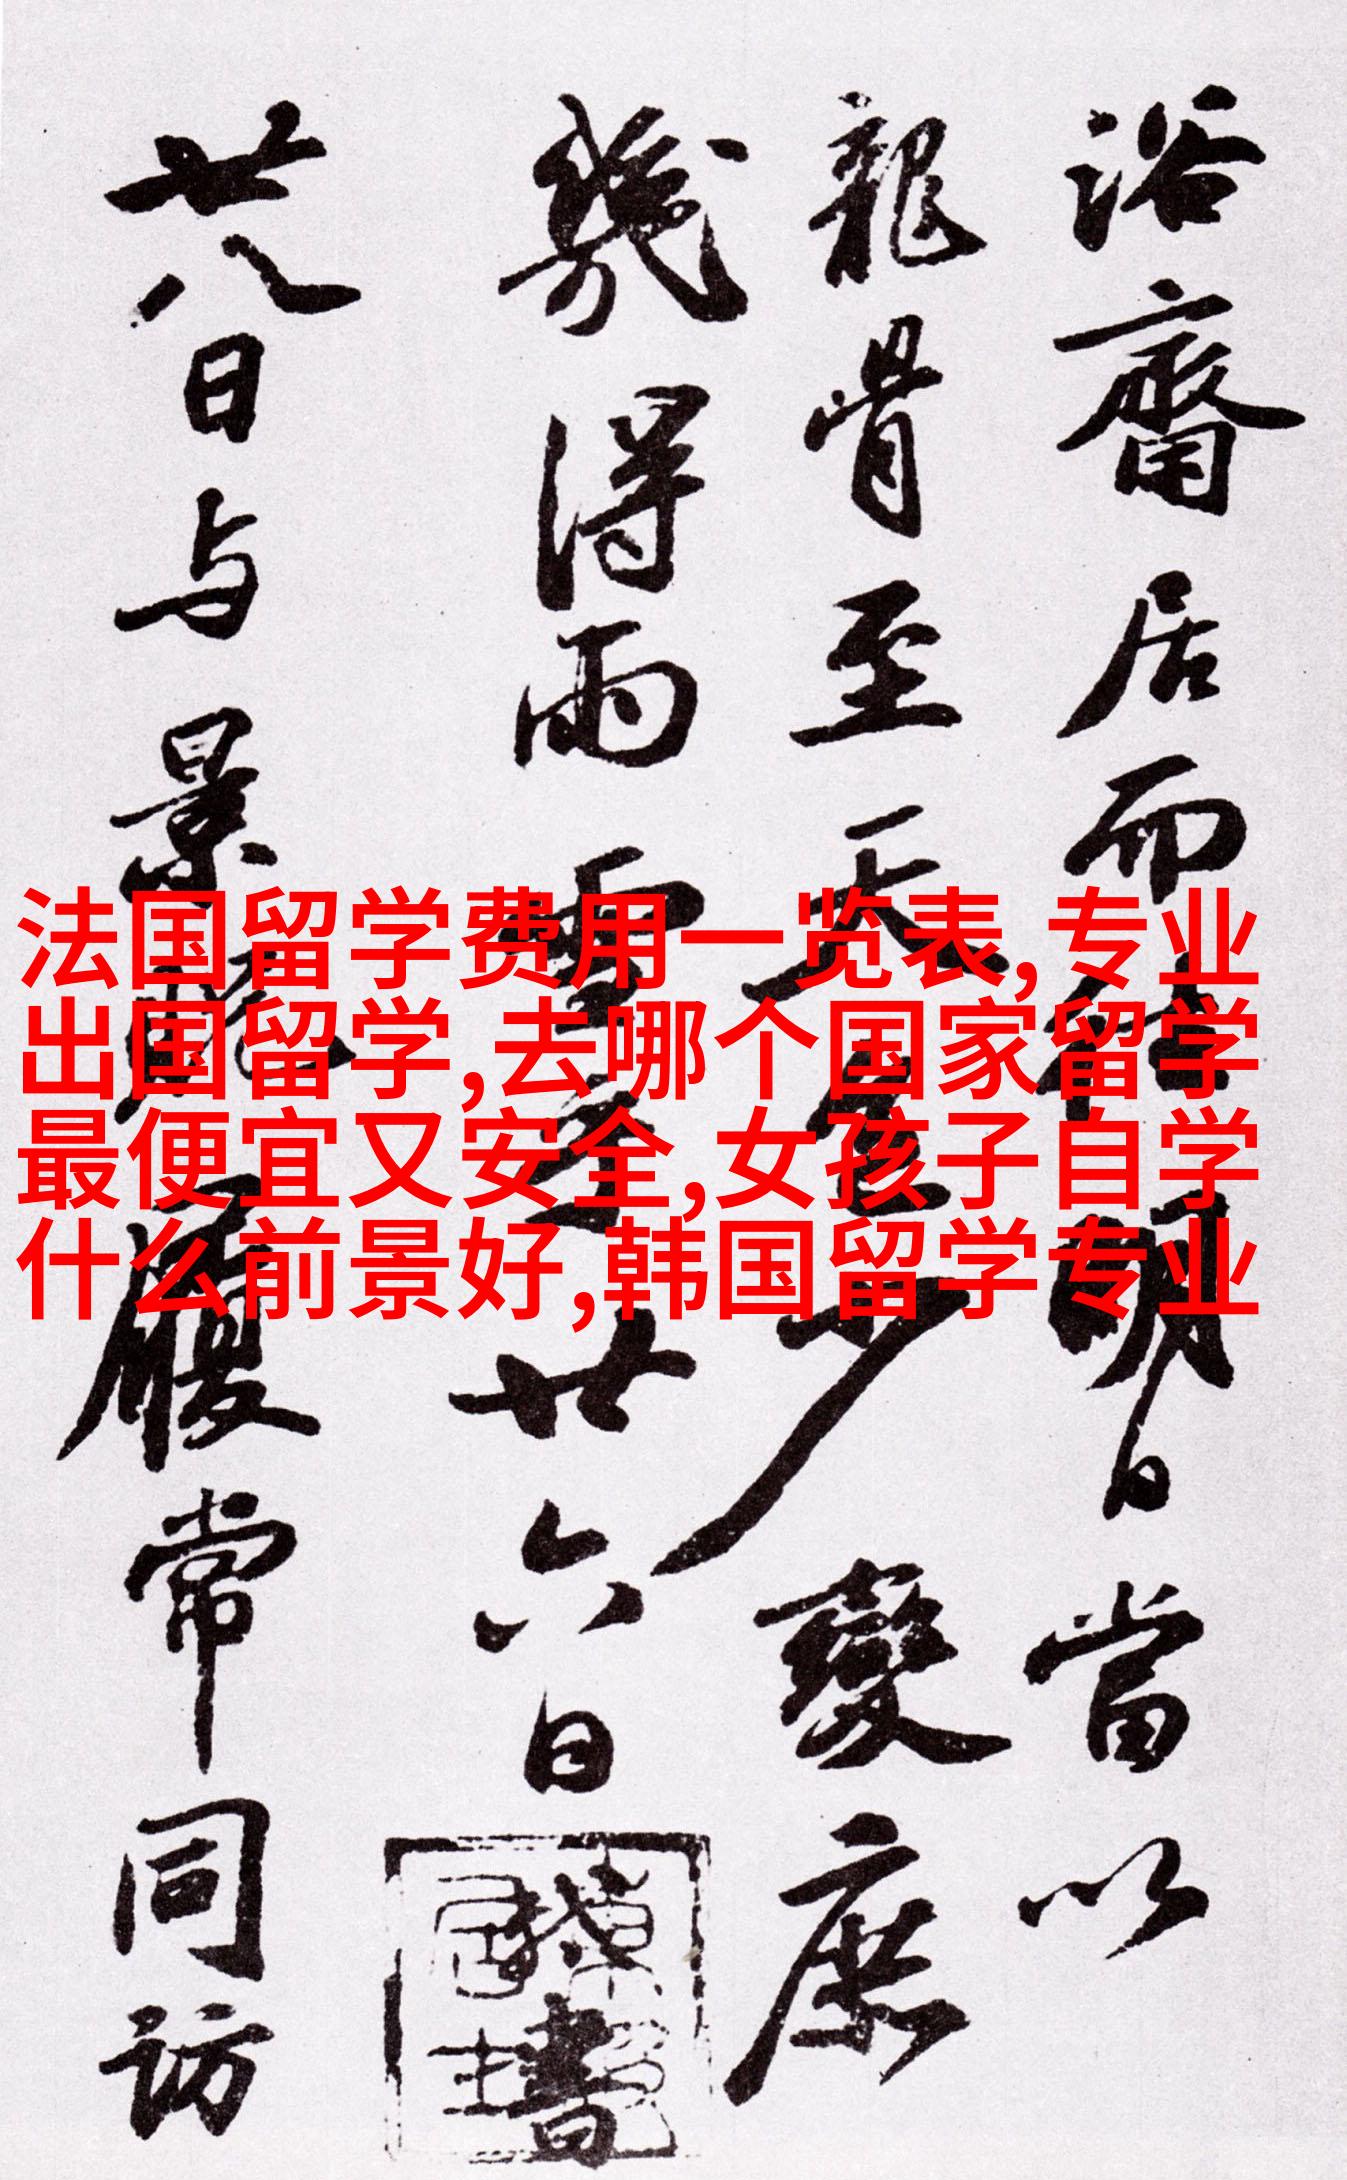 浴齋居而待明日當以
龍骨至天全少變庶
幾得雨雪李廿六日
書
廿八日与景
履常同訪
法国留学费用一览表,专业
出国留学,去哪个国家留学
最便宜又安全,女孩子自学
什么前景好,韩国留学专业